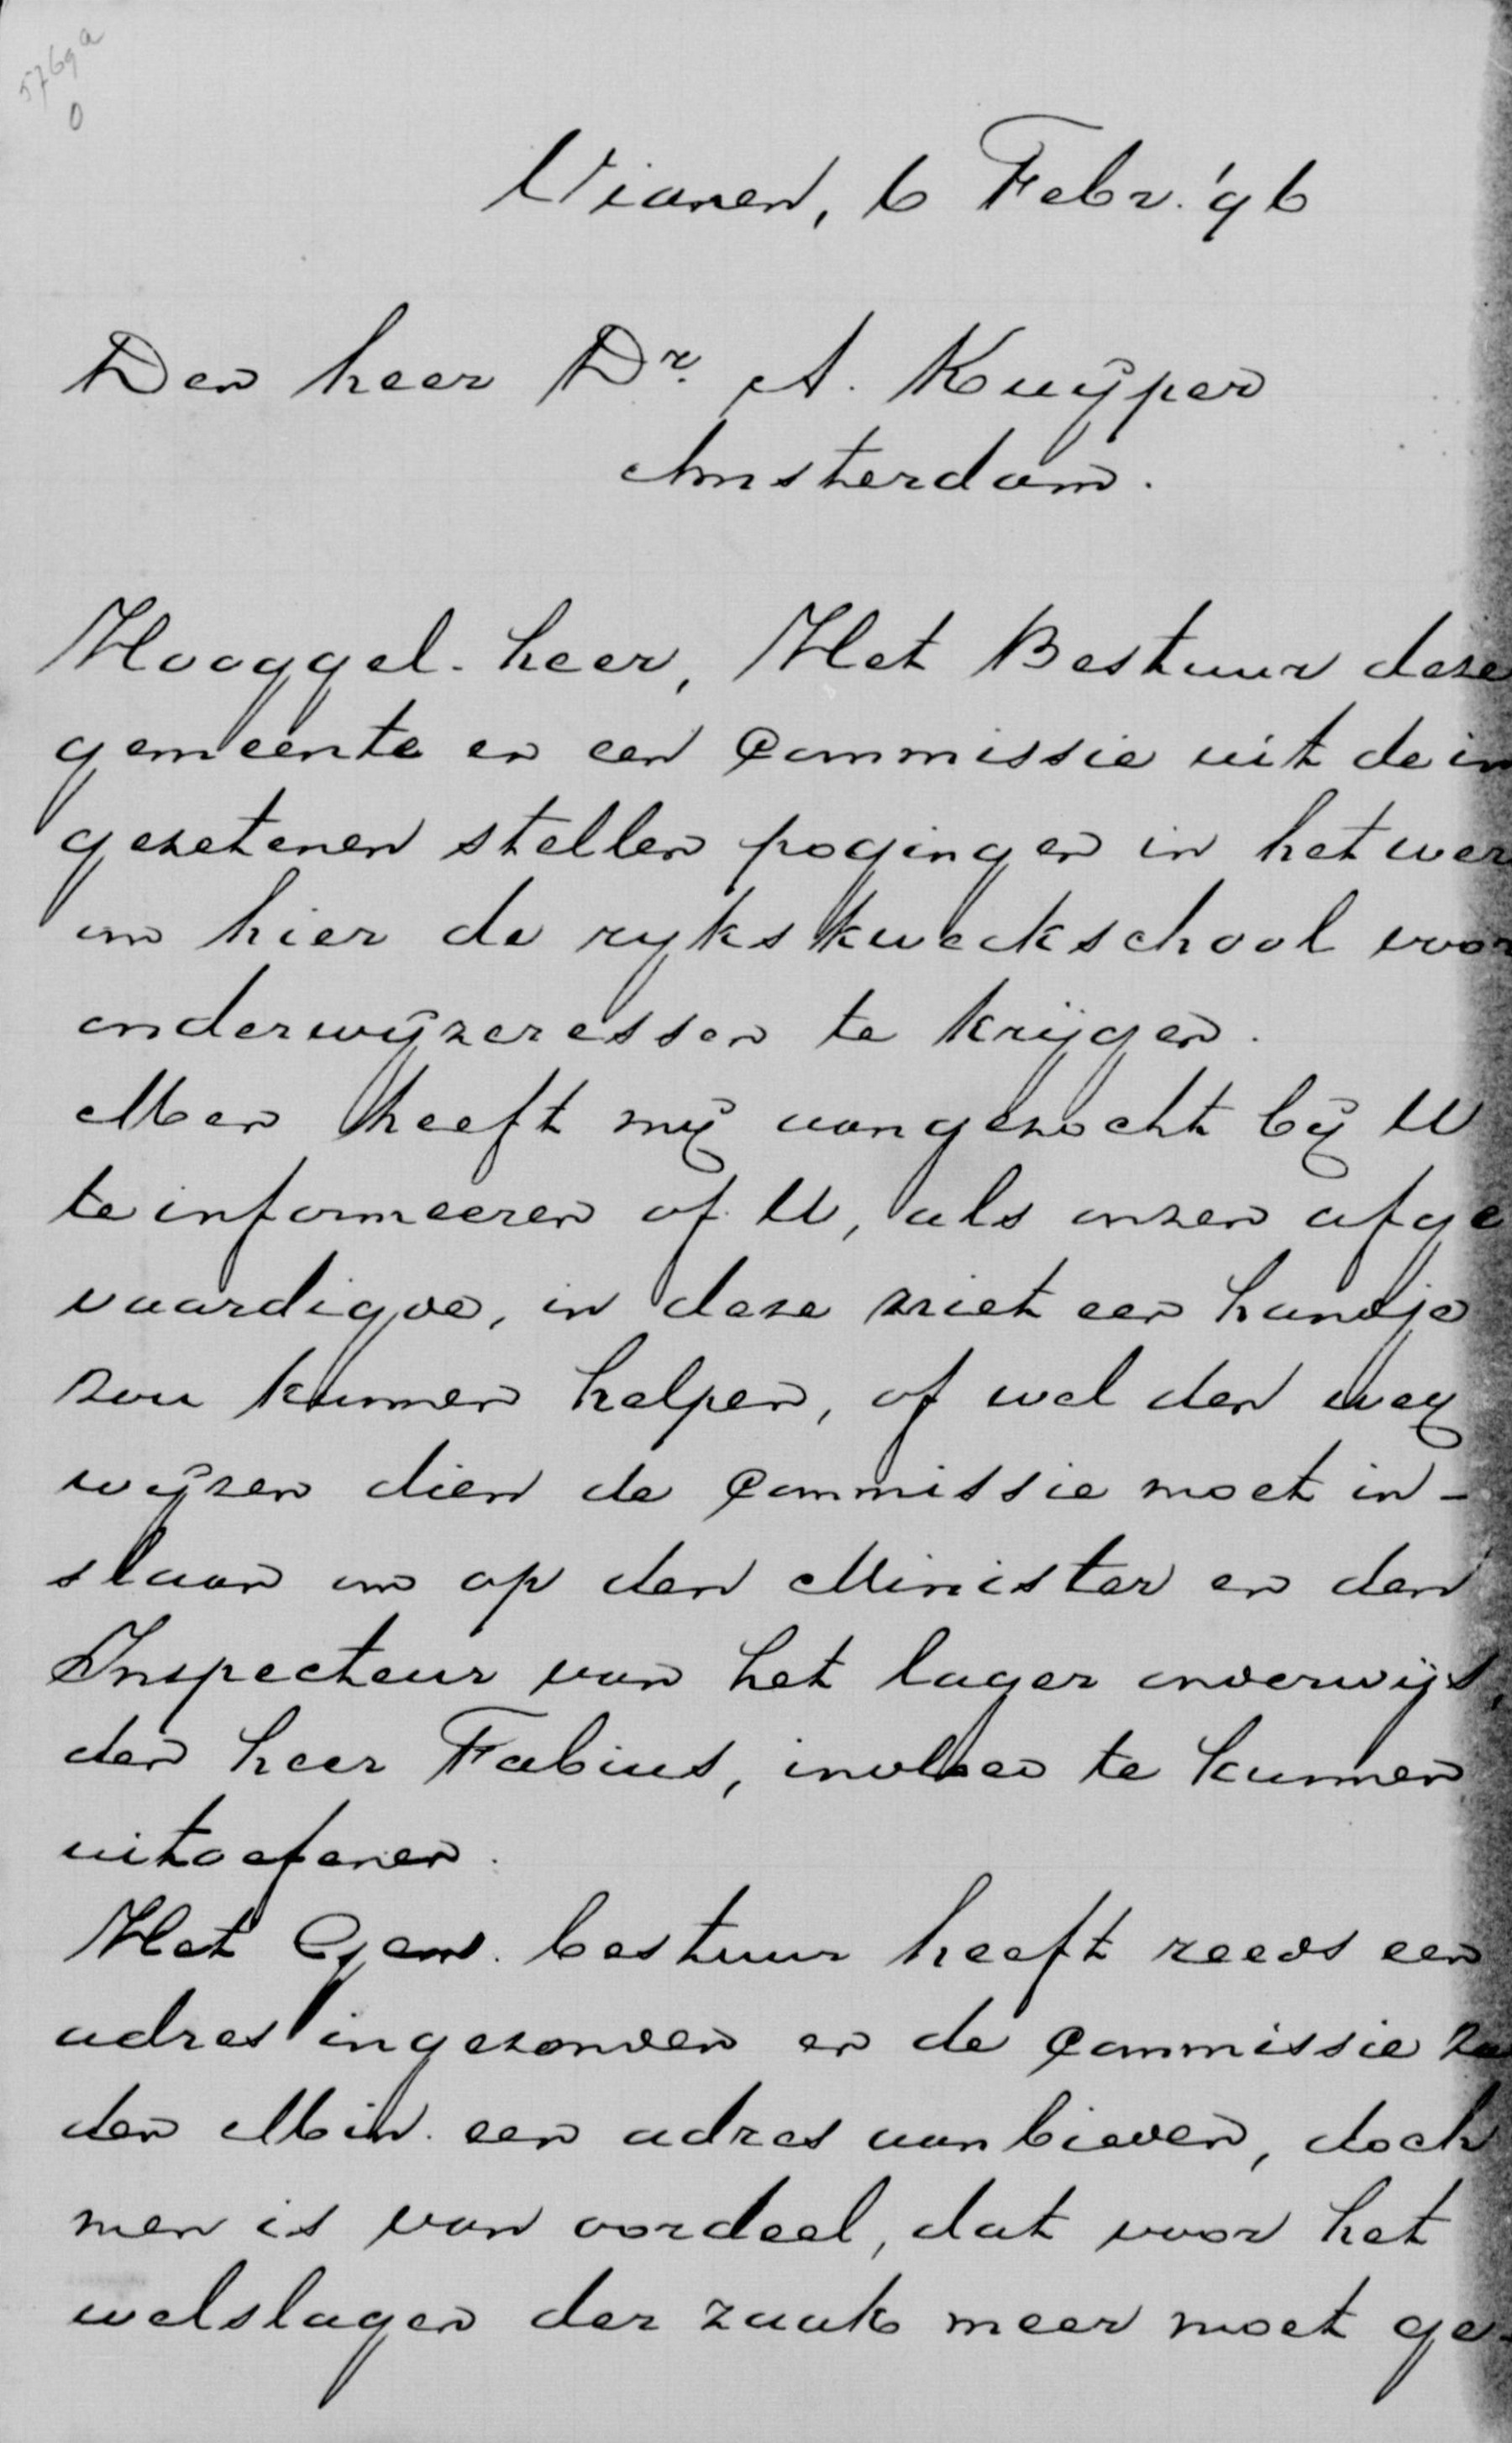 5769a
0
Vianen, 6 Febr. '96
Den heer Dr. A. Kuÿper
Amsterdam.
Hooggel. heer, Het Bestuur deze
gemeente en een Commissie uit de in
gezetenen stellen pogingen in het wer
om hier de rykskweekschool voor
onderwÿzeressen te krÿgen.
Men heeft mÿ aangezocht bÿ U
te informeeren of U, als onzen afge
vaardigde, in deze niet een handje
zou kunnen helpen, of wel den weg
wÿzen dien de Commissie moet in-
slaan om op den Minister en den
Inspecteur van het lager onderwÿs,
den heer Fabius, invloed te kunnen
uitoefenen.
Het Gem. bestuur heeft reeds een
adres ingezonden en de Commissie za
den Min. een adres aanbieden, doch
men is van oordeel, dat voor het
welslagen der zaak meer moet ge-